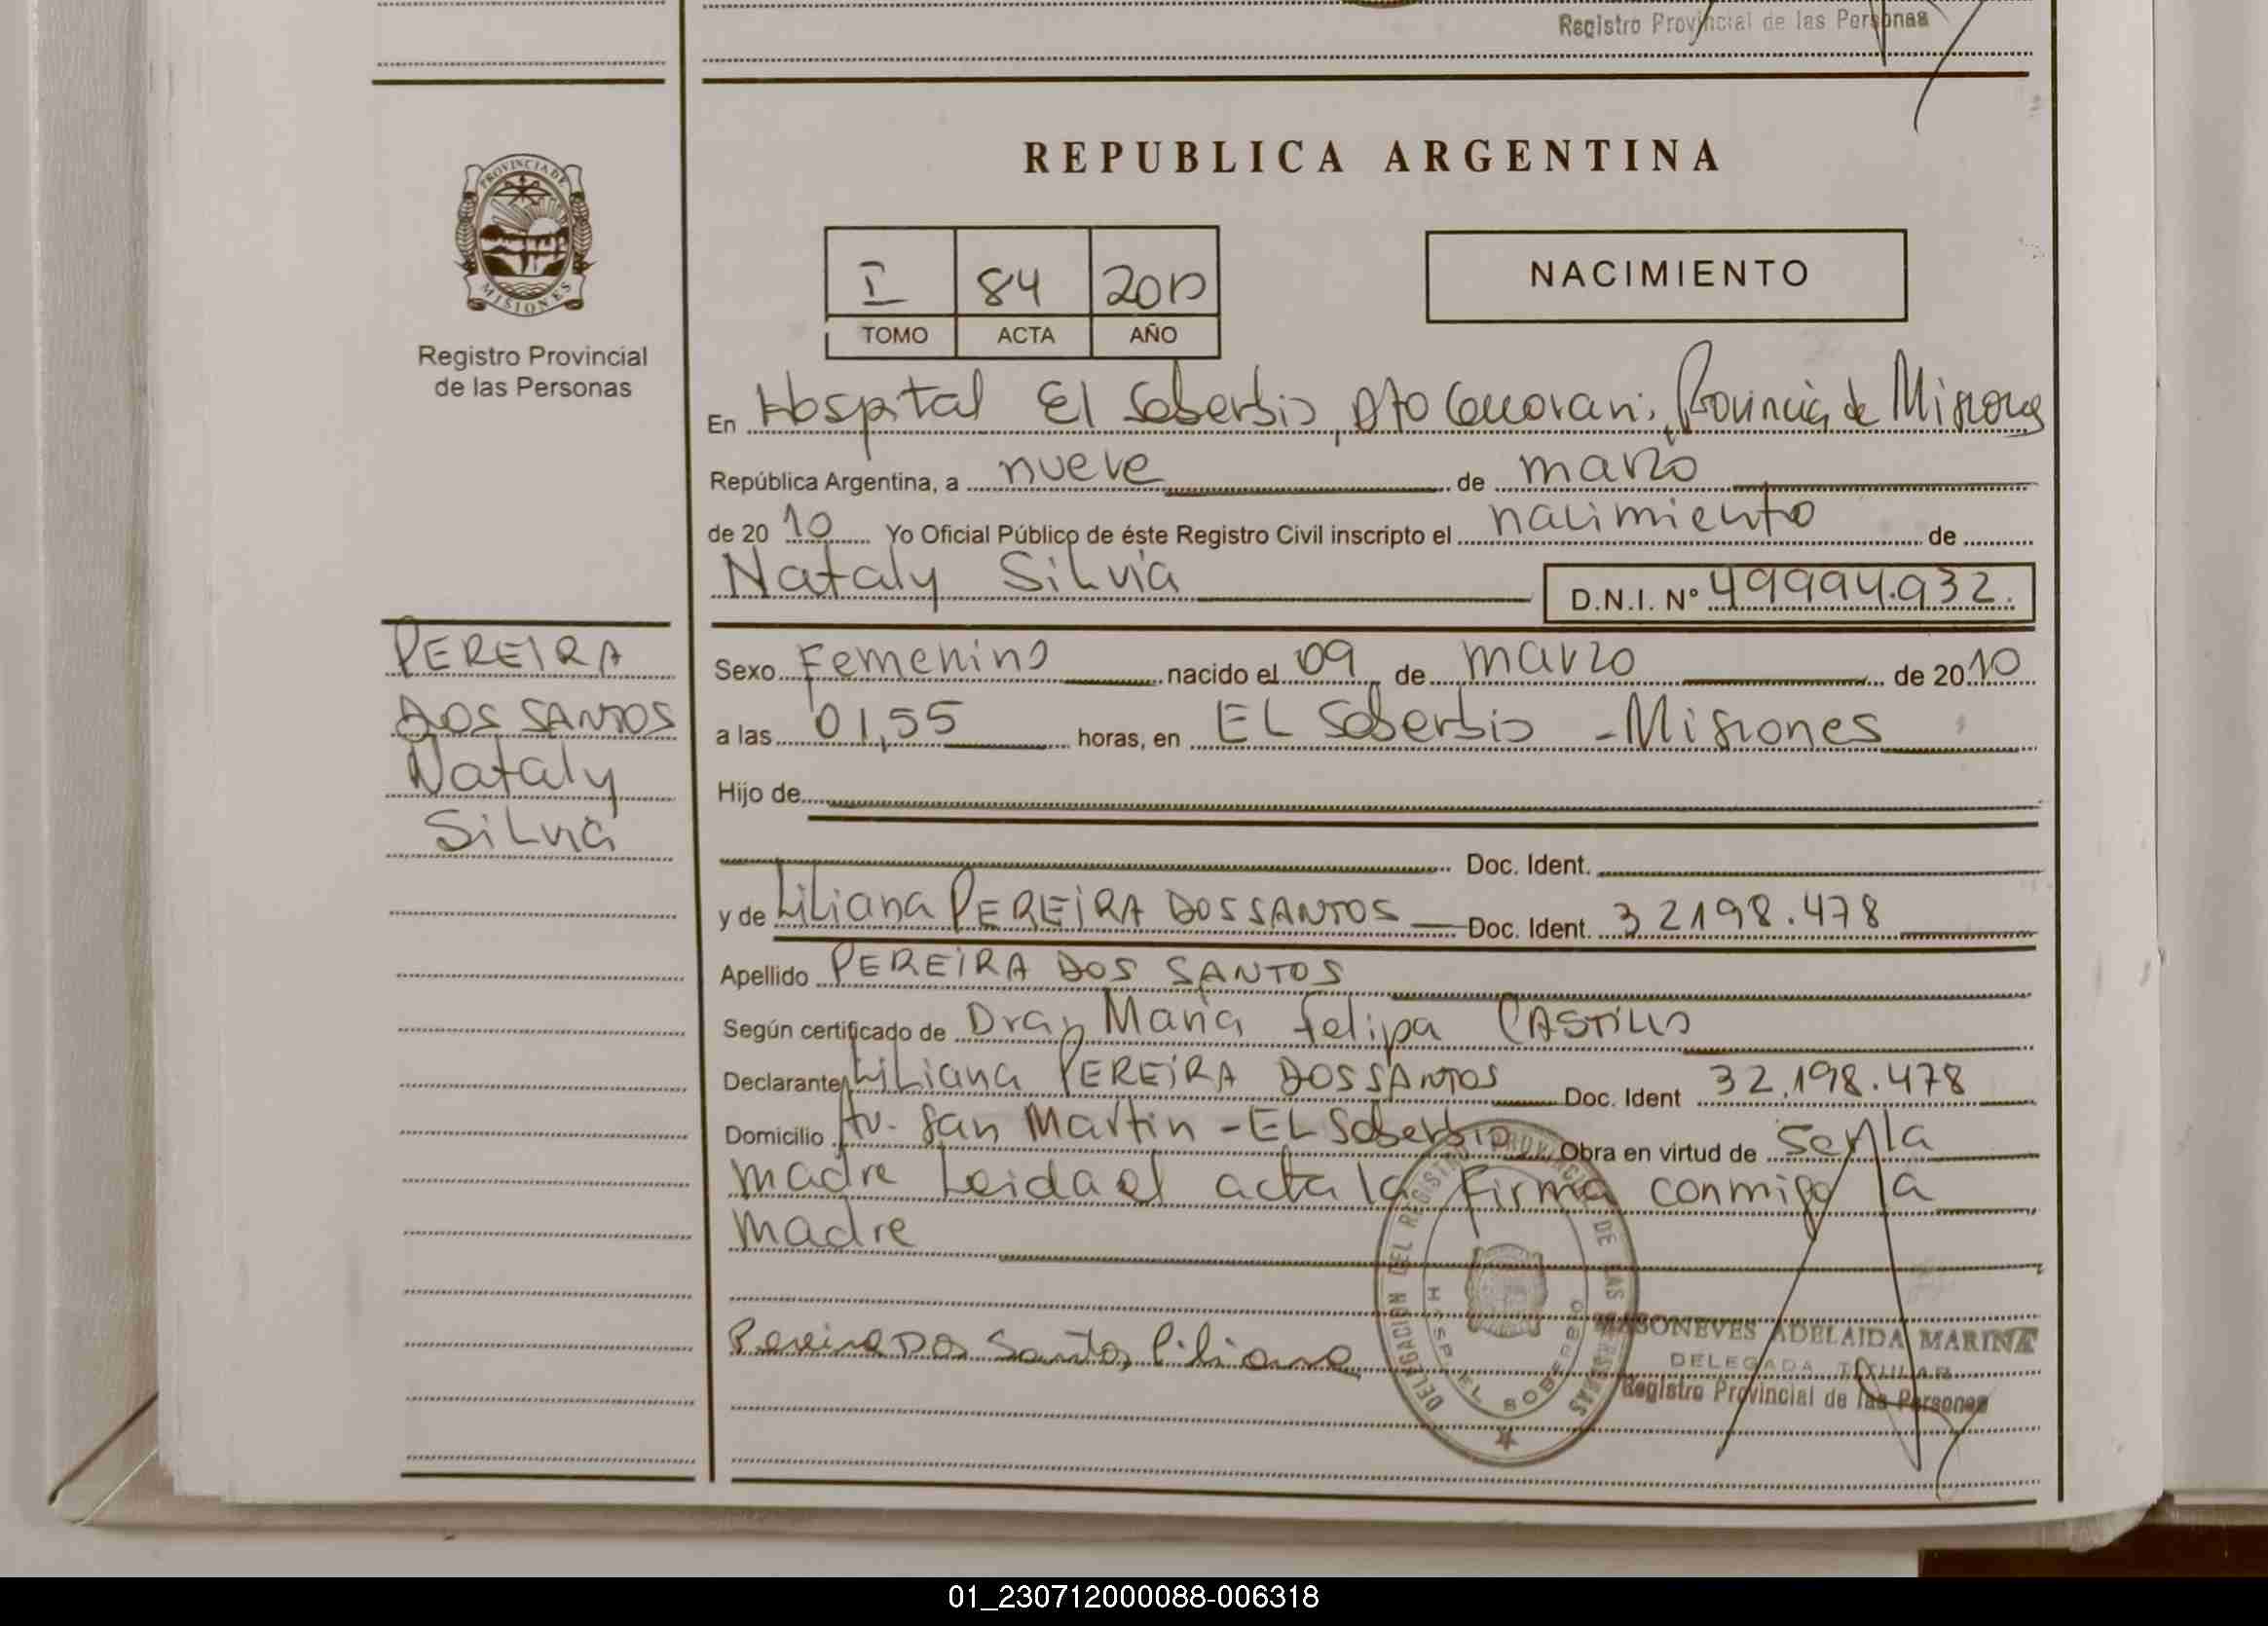 Registro Provincial de las Personas
REPUBLICA ARGENTINA
PROVINCIA DE MISIONES
Registro Provincial
de las Personas
I 84 2010
TOMO ACTA AÑO
NACIMIENTO
En Hospital El Soberbio, Dto Guarani, Provincia de Misiones
República Argentina, a nueve de marzo
de 2010 Yo Oficial Público de éste Registro Civil inscripto el nacimiento de
Nataly Silvia D.N.I. Nº 49994.932.
PEREIRA
DOS SANTOS
Nataly
Silvia
Sexo Femenino nacido el 09 de marzo de 2010
a las 01,55 horas, en EL Soberbio - Misiones
Hijo de
Doc. Ident.
y de Liliana PEREIRA DOS SANTOS Doc. Ident. 32198.478
Apellido PEREIRA DOS SANTOS
Según certificado de Dra, Maria Felipa CASTILLO
Declarante Liliana PEREIRA DOS SANTOS Doc. Ident 32.198.478
Domicilio Av. San Martin - EL Soberbio Obra en virtud de ser la
madre Leida el acta la firma conmigo la
madre
Pereira Dos Santos Liliana
DELEGACION DEL REGISTRO PROVINCIAL DE LAS PERSONAS
HOSP. EL SOBERBIO
MASONEVES ADELAIDA MARINA
DELEGADA TITULAR
Registro Provincial de las Personas
01_230712000088-006318